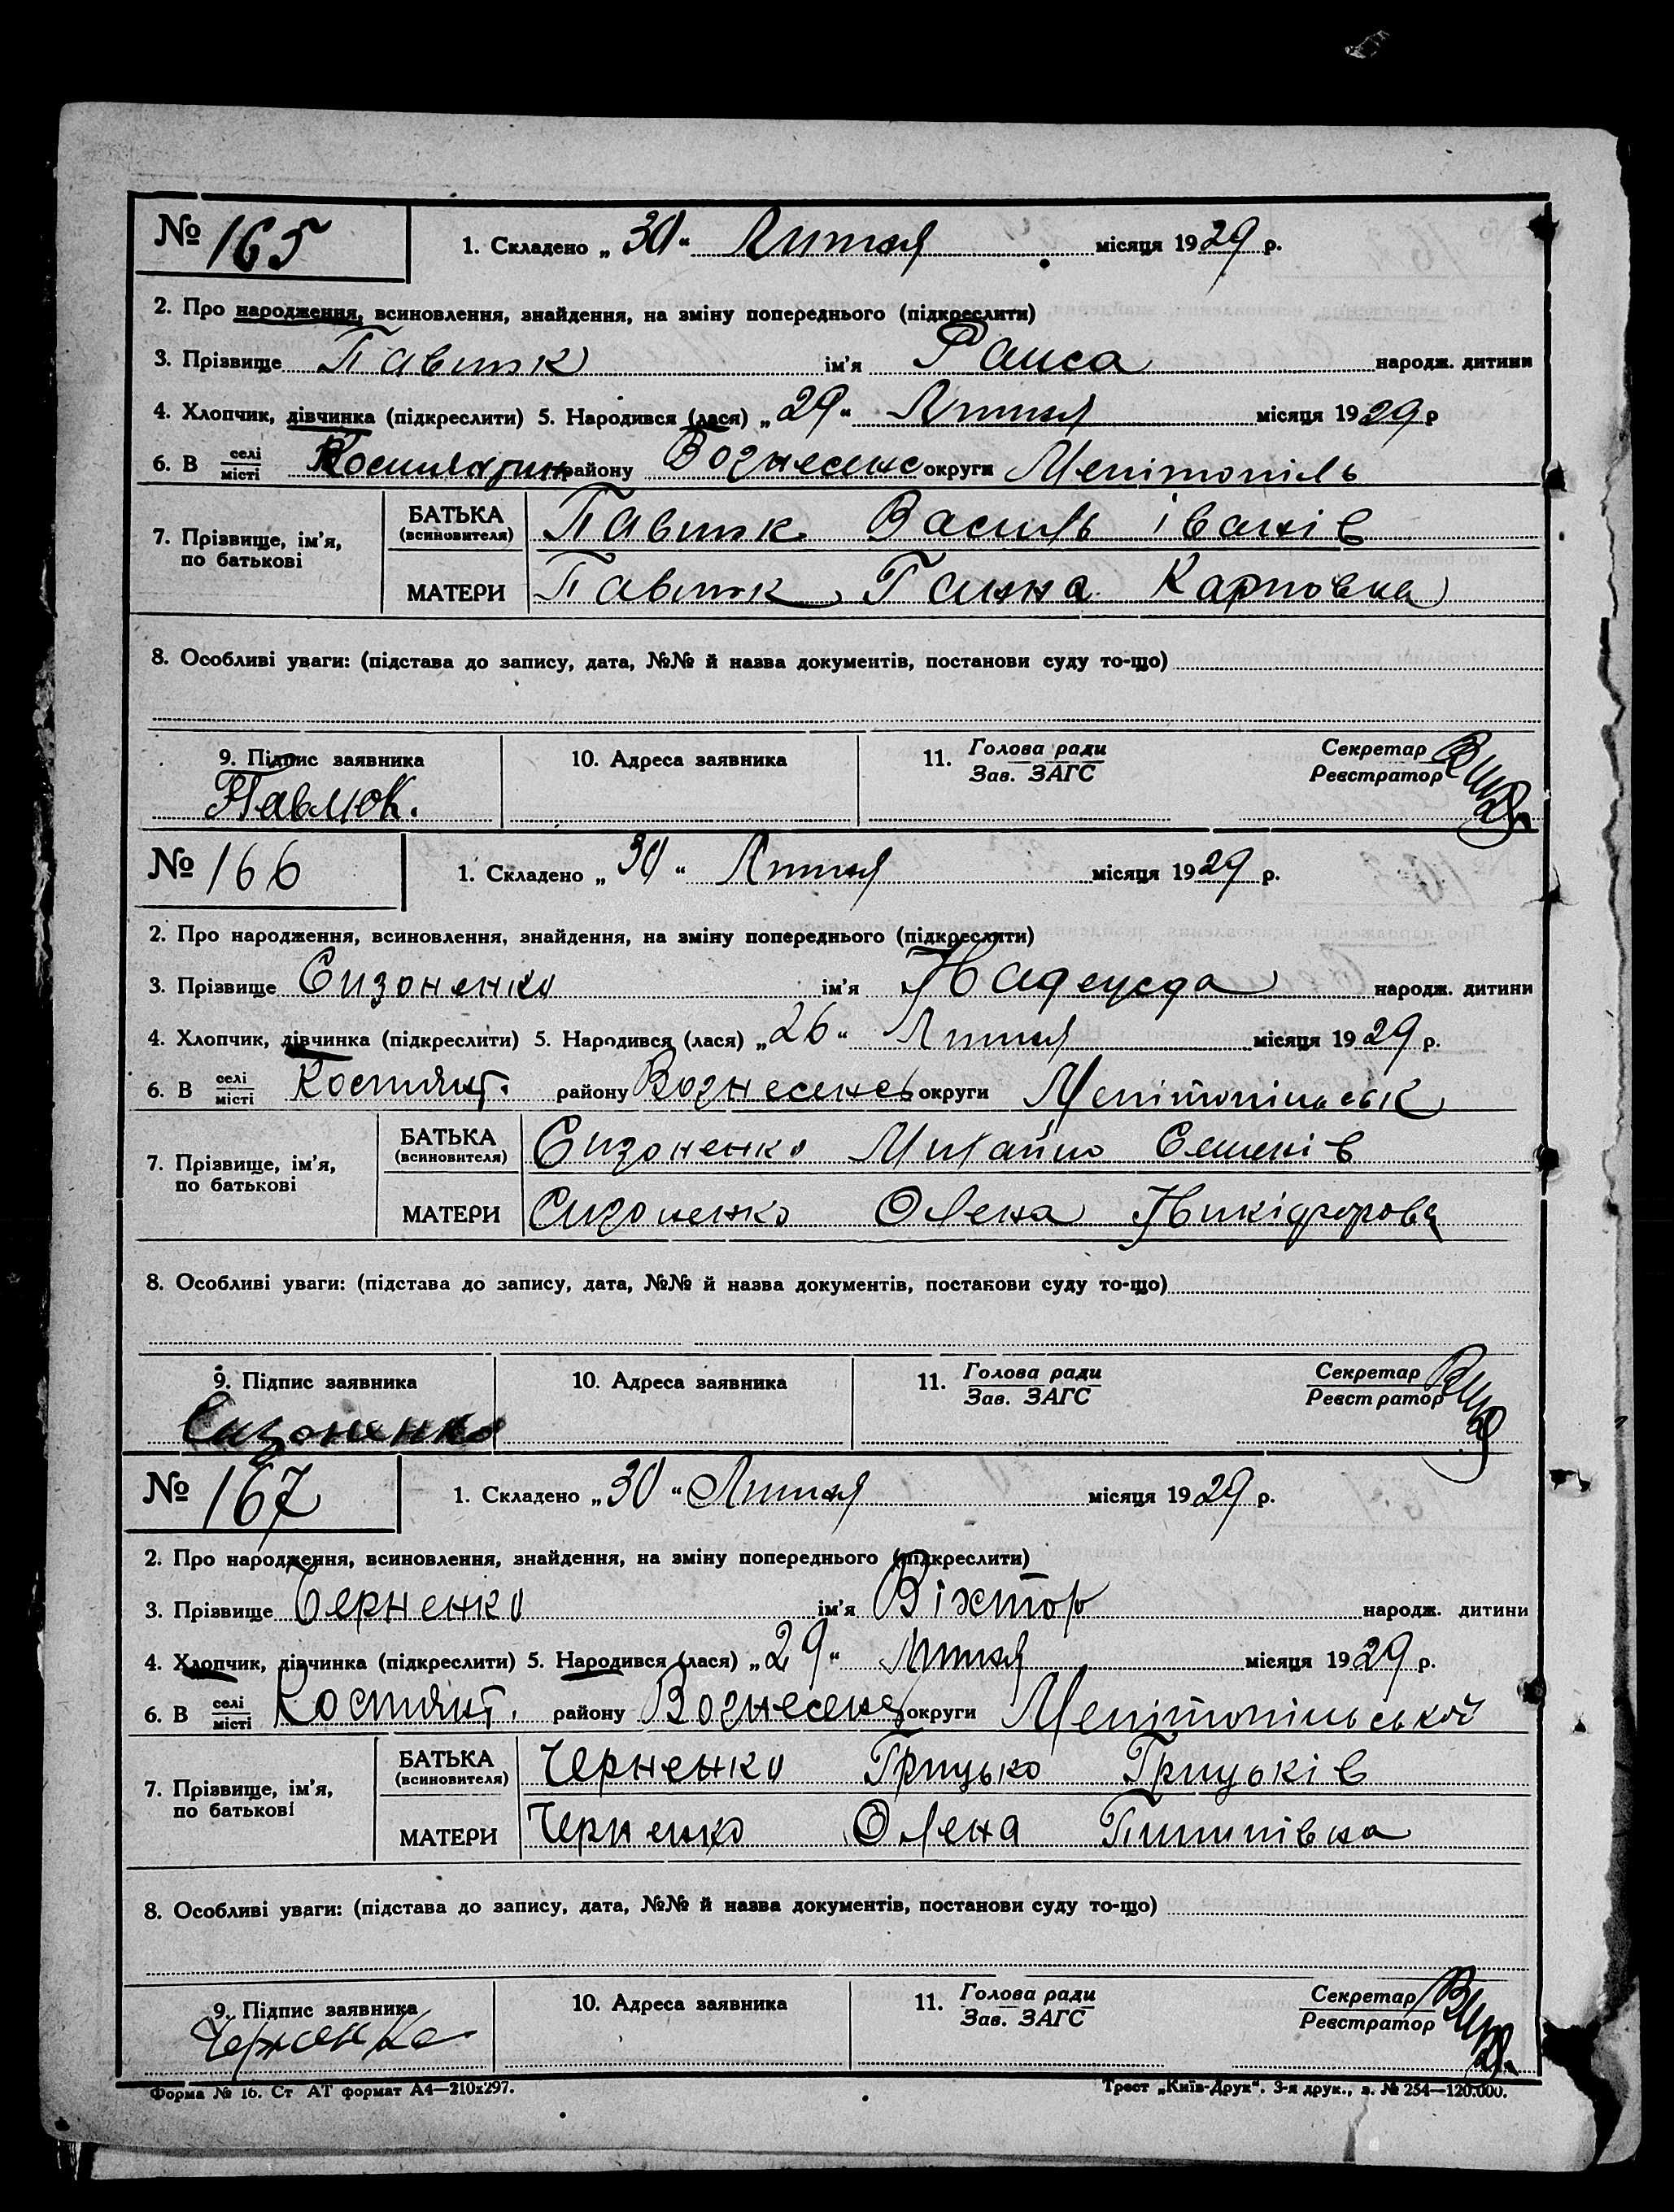 № 165 1. Складено „30“ Липня місяця 1929 р.
2. Про народження, всиновлення, знайдення, на зміну попереднього (підкреслити)
3. Прізвище Павлюк ім’я Раиса народж. дитини
4. Хлопчик, дівчинка (підкреслити) 5. Народився (лася) „29“ Липня місяця 1929 р
6. В селі місті району Вознесенс округи Мелітопіль
7. Прізвище, ім’я, по батькові
БАТЬКА (всиновителя) Павлюк Василь Іванів
МАТЕРИ Павлюк Ганна Карповна
8. Особливі уваги: (підстава до запису, дата, №№ й назва документів, постанови суду то-що)
9. Підпис заявника 10. Адреса заявника 11. Голова ради Зав. ЗАГС Секретар Реєстратор
Павлюк.
№ 166 1. Складено „30“ Липня місяця 1929 р.
2. Про народження, всиновлення, знайдення, на зміну попереднього (підкреслити)
3. Прізвище Сизоненко ім’я Надежда народж. дитини
4. Хлопчик, дівчинка (підкреслити) 5. Народився (лася) „26“ Липня місяця 1929 р.
6. В селі місті Костянт. району Вознесенсь округи Мелітопільськ
7. Прізвище, ім’я, по батькові
БАТЬКА (всиновителя) Сизоненко Михайло Семенів
МАТЕРИ Сизоненко Олена Никіфоровa
8. Особливі уваги: (підстава до запису, дата, №№ й назва документів, постанови суду то-що)
9. Підпис заявника 10. Адреса заявника 11. Голова ради Зав. ЗАГС Секретар Реєстратор
Сизоненко
№ 167 1. Складено „30“ Липня місяця 1929 р.
2. Про народження, всиновлення, знайдення, на зміну попереднього (підкреслити)
3. Прізвище Черненко ім’я Віктор народж. дитини
4. Хлопчик, дівчинка (підкреслити) 5. Народився (лася) „29“ Липня місяця 1929 р.
6. В селі місті Костянт. району Вознесенс округи Мелітопільської
7. Прізвище, ім’я, по батькові
БАТЬКА (всиновителя) Черненко Грицько Грицьків
МАТЕРИ Черненко Олена Пилипівна
8. Особливі уваги: (підстава до запису, дата, №№ й назва документів, постанови суду то-що)
9. Підпис заявника 10. Адреса заявника 11. Голова ради Зав. ЗАГС Секретар Реєстратор
Черненко
Форма № 16. Ст АТ формат А4—210x297. Трест „Київ-Друк“. 3-я друк., з. № 254—120.000.